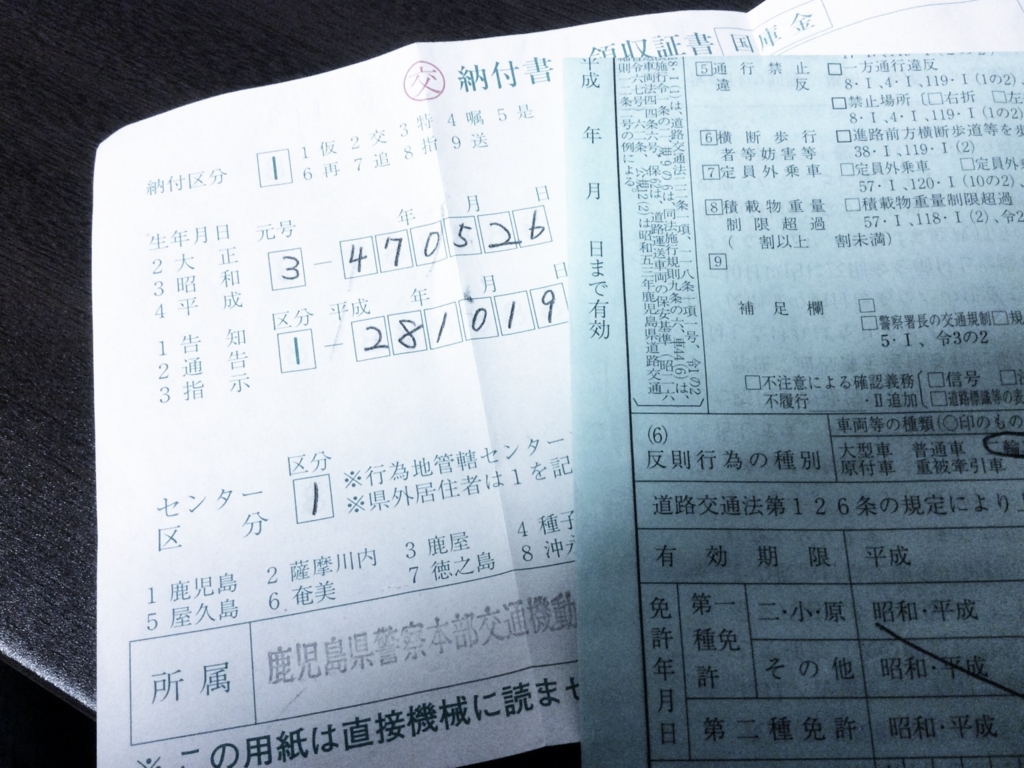 交 納付書 領収証書 国庫金
納付区分 1 1 仮 2 交 3 特 4 嘱 5 是
6 再 7 追 8 指 9 送
生年月日 元号 年 月 日
2 大正
3 昭和
4 平成
3 - 470526
区分 平成 年 月 日
1 告知
2 通告
3 指示
1 - 281019
センター区分 区分 1
※行為地管轄センター
※県外居住者は1を記
1 鹿児島 2 薩摩川内 3 鹿屋 4 種子
5 屋久島 6 奄美 7 徳之島 8 沖永
所属 鹿児島県警察本部交通機動
※この用紙は直接機械に読ませ
平成 年 月 日まで有効
5 通行禁止違反 □一方通行違反
8・I、4・I、119・I(1の2)
□禁止場所(□右折 □左
8・I、4・I、119・I(1の2)
6 横断歩行者等妨害等 □進路前方横断歩道等を
38・I、119・I(2)
7 定員外乗車 □定員外乗車 □定員外
57・I、120・I(10の2)、
8 積載物重量制限超過 □積載物重量制限超過
57・I、118・I(2)、令2
( 割以上 割未満)
9
補足欄 □
□警察署長の交通規制 □規
5・I、令3の2
□不注意による確認義務不履行・II追加
□信号
□道路標識等の表
(6)
反則行為の種別
車両等の種類(○印のもの
大型車 普通車 輪
原付車 重被牽引車
道路交通法第126条の規定により
有効期限 平成
免許年月日 第一種免許 二・小・原 昭和・平成
その他 昭和・平成
第二種免許 昭和・平成